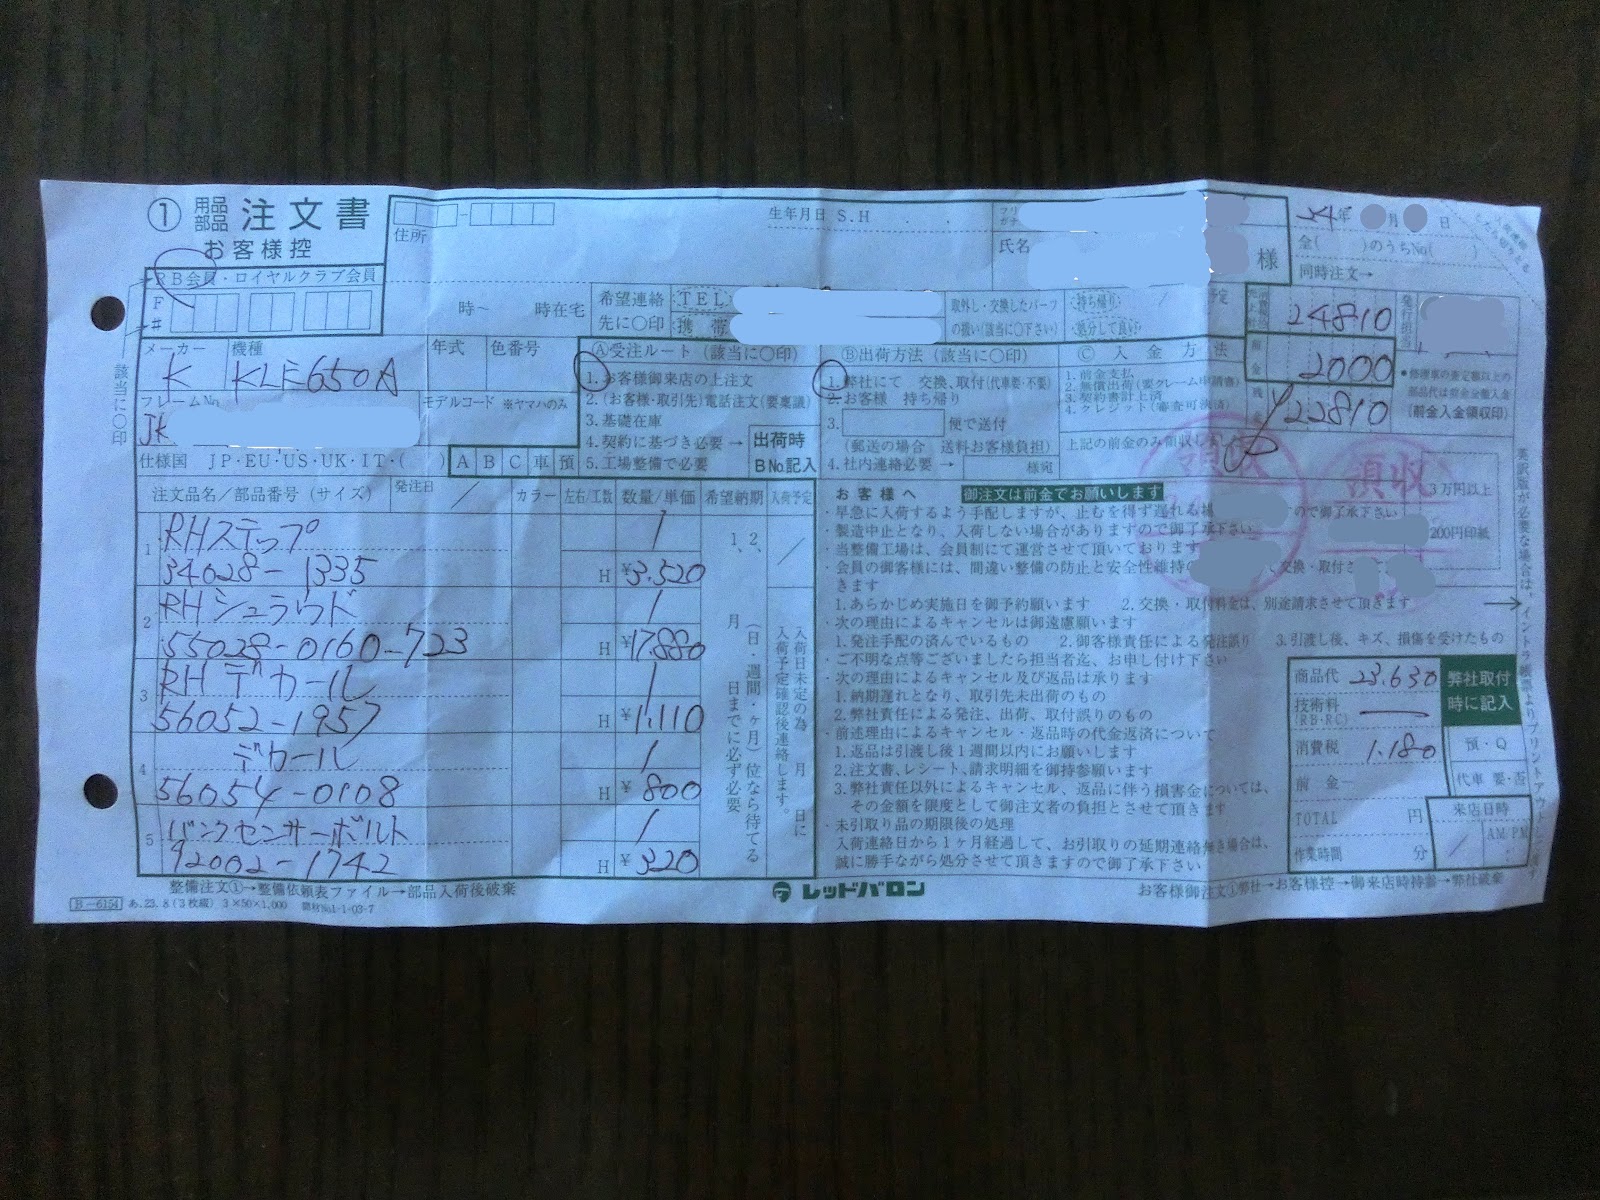 ① 用品 部品 注文書
お客様控
RB会員・ロイヤルクラブ会員
F
#
該当に〇印
住所
時〜 時在宅
生年月日 S.H
氏名
様
年 月 日
金( )のうちNo( )
同時注文→
希望連絡先に〇印
TEL
携帯
取外し・交換したパーツの扱い(該当に〇下さい)
持ち帰り
処分して良い
24810
前金 2000
¥22810
(前金入金領収印)
メーカー K
機種 KLE650A
年式
色番号
フレームNo. JK
モデルコード ※ヤマハのみ
仕様国 JP・EU・US・UK・IT・( )
A B C 車 預
Ⓐ受注ルート(該当に〇印)
1. お客様御来店の上注文
2. (お客様・取引先)電話注文(要稟議)
3. 基礎在庫
4. 契約に基づき必要→
5. 工場整備で必要
出荷時
B No.記入
Ⓑ出荷方法(該当に〇印)
1. 弊社にて 交換、取付(代車要・不要)
2. お客様 持ち帰り
3. 便で送付
(郵送の場合 送料お客様負担)
4. 社内連絡必要→ 様宛
Ⓒ入金方法
1. 前金支払
2. 無償出荷(要クレーム申請書)
3. 契約書計上済
4. クレジット(審査可決済)
上記の前金のみ領収しました
領収
領収
3万円以上
200円印紙
注文品名/部品番号(サイズ)
発注日 /
カラー
左右/工数
数量/単価
希望納期
入荷予定
1 RHステップ 1
34028-1335 H ¥3.520
2 RHシュラウド 1
55028-0160-723 H ¥17.880
3 RHデカール 1
56052-1957 H ¥1.110
4 デカール 1
56054-0108 H ¥800
5 バンクセンサーボルト 1
92002-1742 H ¥320
1、 月 日までに必ず必要
2、 (日・週間・ヶ月)位なら待てる
入荷日未定の為 月 日に
入荷予定確認後連絡します。
お客様へ 御注文は前金でお願いします
・早急に入荷するよう手配しますが、止むを得ず遅れる場 ので御了承下さい
・製造中止となり、入荷しない場合がありますので御了承下さい
・当整備工場は、会員制にて運営させて頂いております
・会員の御客様には、間違い整備の防止と安全性維持の 、交換・取付させて
きます
1. あらかじめ実施日を御予約願います 2. 交換・取付料金は、別途請求させて頂きます
・次の理由によるキャンセルは御遠慮願います
1. 発注手配の済んでいるもの 2. 御客様責任による発注誤り 3. 引渡し後、キズ、損傷を受けたもの
・ご不明な点等ございましたら担当者迄、お申し付け下さい
・次の理由によるキャンセル及び返品は承ります
1. 納期遅れとなり、取引先未出荷のもの
2. 弊社責任による発注、出荷、取付誤りのもの
・前述理由によるキャンセル・返品時の代金返済について
1. 返品は引渡し後1週間以内にお願いします
2. 注文書、レシート、請求明細を御持参願います
3. 弊社責任以外によるキャンセル、返品に伴う損害金については、
その金額を限度として御注文者の負担とさせて頂きます
・未引取り品の期限後の処理
入荷連絡日から1ヶ月経過して、お引取りの延期連絡無き場合は、
誠に勝手ながら処分させて頂きますので御了承下さい
商品代 23.630
技術料(RB・RC) —
消費税 1.180
前金 −
TOTAL 円
作業時間 分
弊社取付時に記入
預・Q
代車 要・否
来店日時
/ AM PM :
整備注文①→整備依頼表ファイル→部品入荷後破棄
レッドバロン
お客様御注文①弊社→お客様控→御来店時持参→弊社破棄
B-6154 あ.23.8(3枚綴) 3×50×1,000